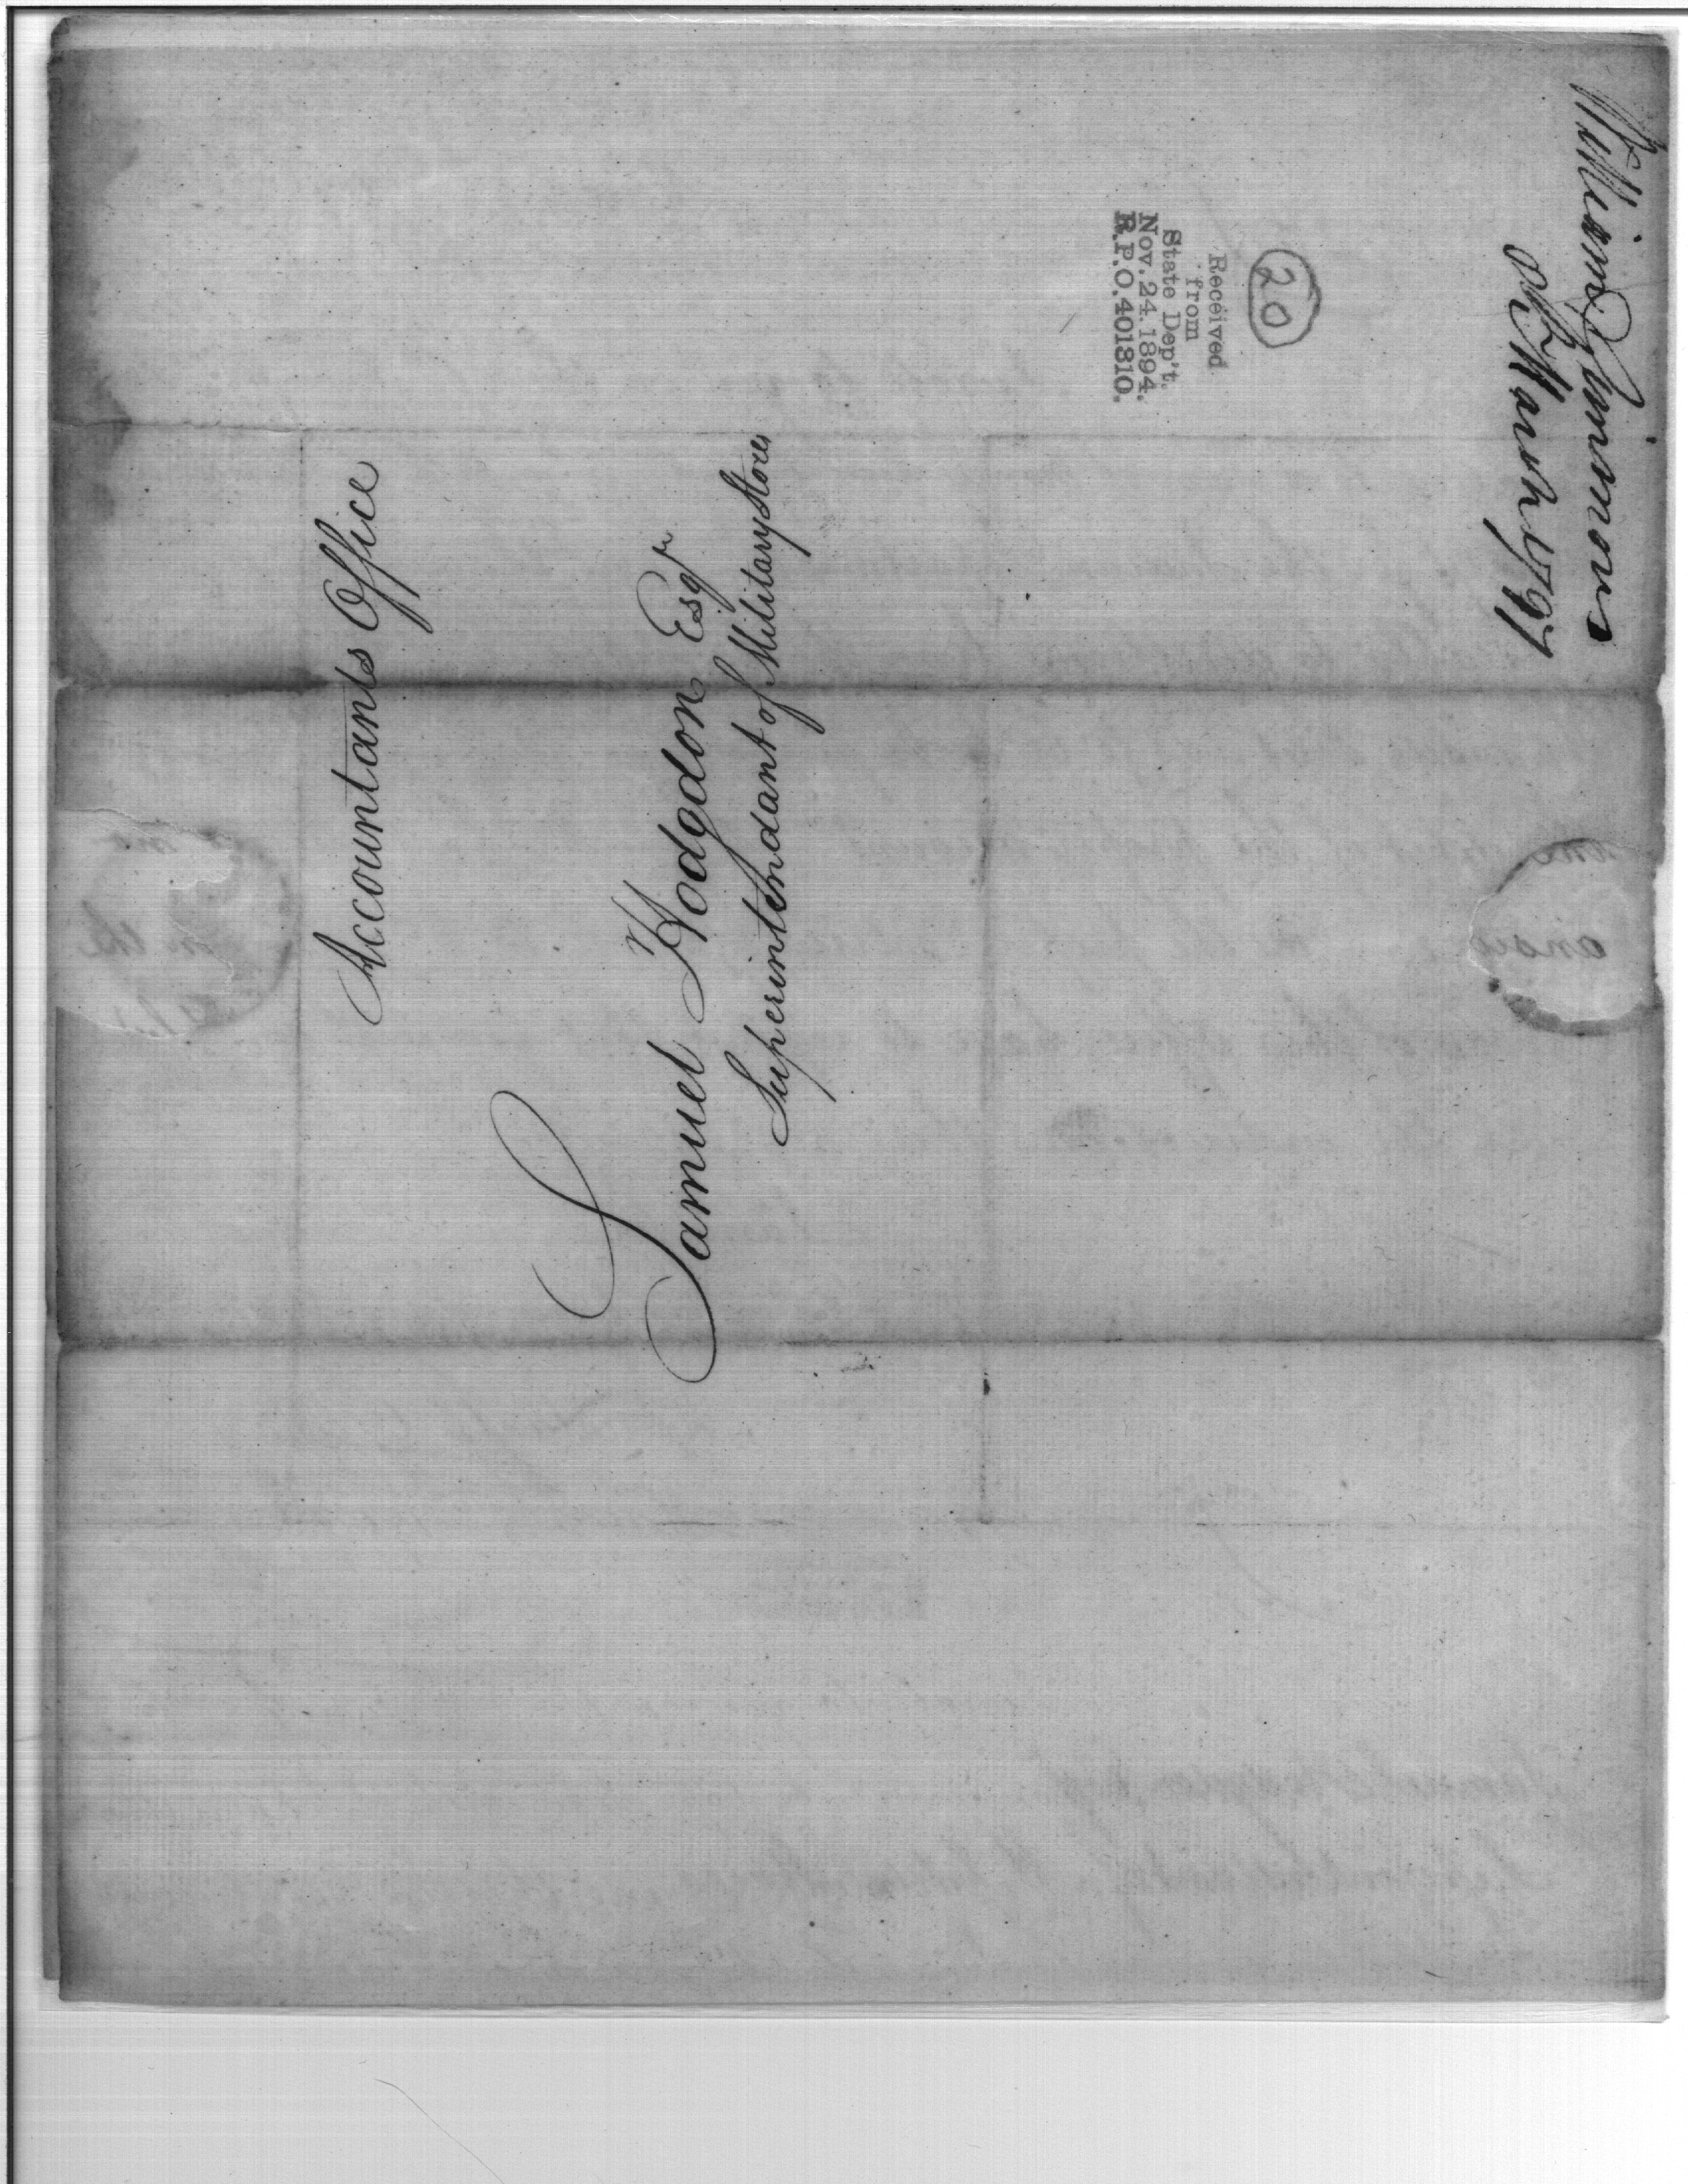 Accountants Office
Samuel Hodgdon Esqr
Superintendant of Military Stores
William Simmons
8th March 1797
20
Received
from
State Dep't.
Nov. 24. 1894.
R.P.O. 401310.